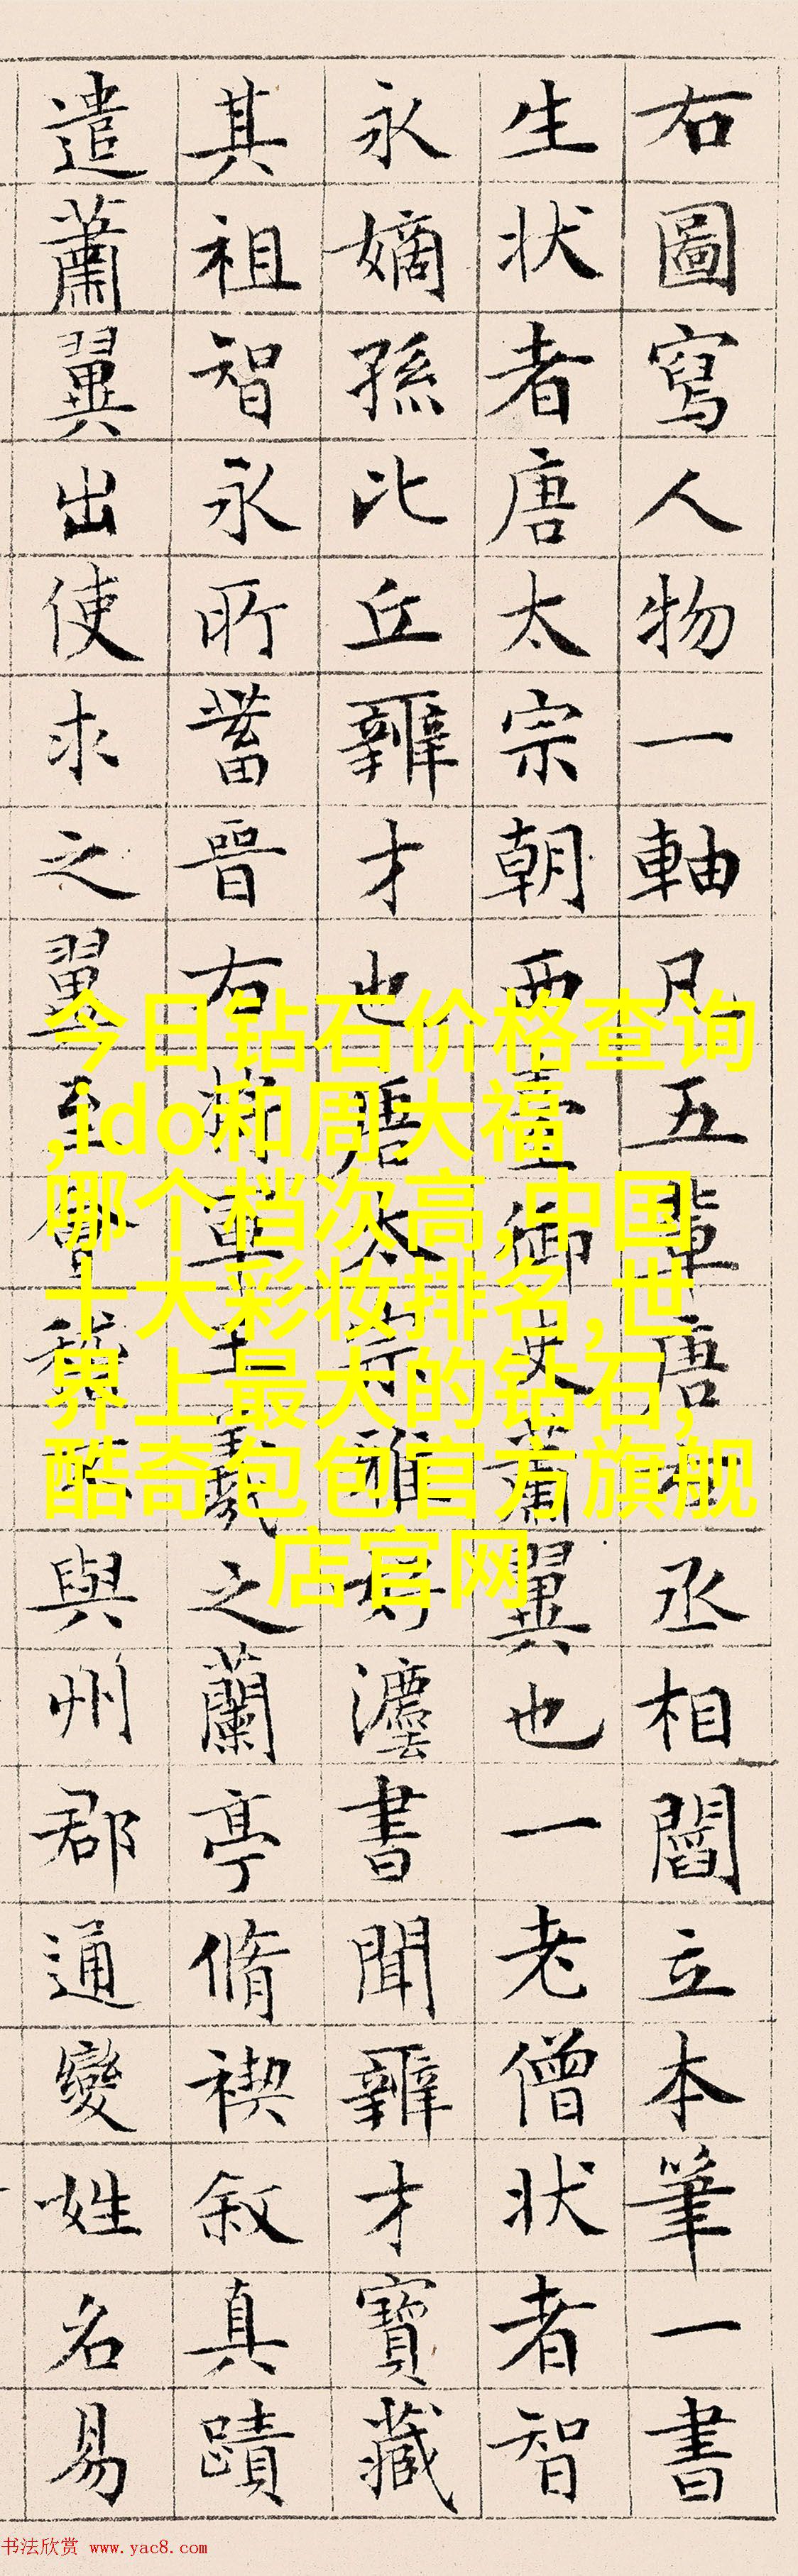 右圖寫人物一軸凡五輩唐右丞相閻立本筆一書
生状者唐太宗朝西臺御史蕭翼也一老僧状者智
永嫡孫比丘辯才也唐太宗雅好灋書聞辯才寶藏
其祖智永所蓄晉右將軍王羲之蘭亭脩禊叙真蹟
遣蕭翼出使求之翼至會稽不與州郡通變姓名易
今日钻石价格查询
,ido和周大福
哪个档次高,中国
十大彩妆排名,世
界上最大的钻石,
酷奇包包官方旗舰
店官网
书法欣赏 www.yac8.com